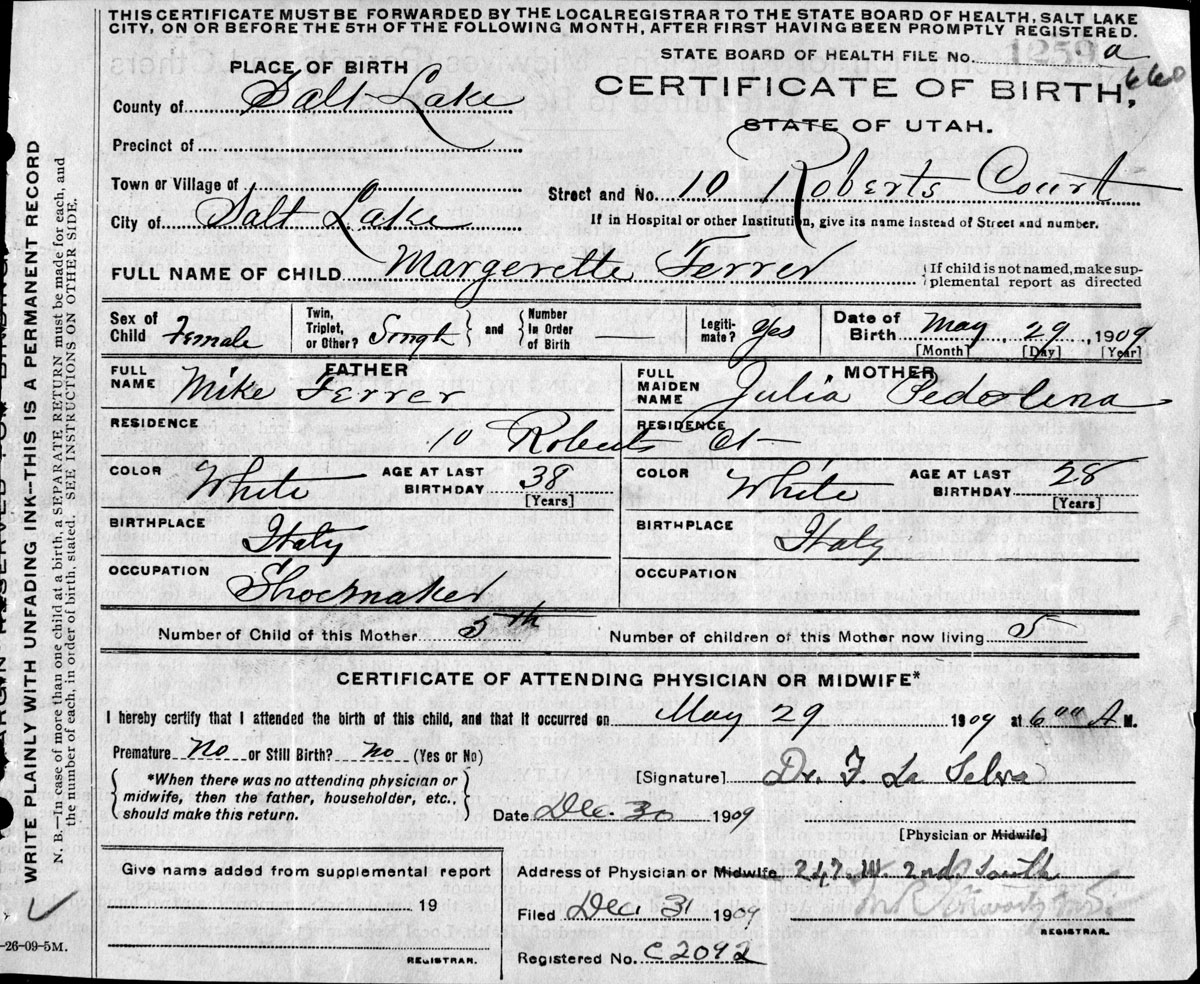 THIS CERTIFICATE MUST BE FORWARDED BY THE LOCAL REGISTRAR TO THE STATE BOARD OF HEALTH, SALT LAKE
CITY, ON OR BEFORE THE 5TH OF THE FOLLOWING MONTH, AFTER FIRST HAVING BEEN PROMPTLY REGISTERED.
STATE BOARD OF HEALTH FILE No. 1259 a
660
PLACE OF BIRTH
CERTIFICATE OF BIRTH,
County of Salt Lake
STATE OF UTAH.
Precinct of
Town or Village of
Street and No. 10 Roberts Court
City of Salt Lake
If in Hospital or other Institution, give its name instead of Street and number.
FULL NAME OF CHILD Margerette Ferrer
If child is not named, make sup-
plemental report as directed
Sex of Child Female
Twin, Triplet, or Other? Single and Number In Order of Birth —
Legiti-mate? Yes
Date of Birth May 29, 1909
[Month] [Day] [Year]
FATHER
FULL NAME Mike Ferrer
MOTHER
FULL MAIDEN NAME Julia Pedolina
RESIDENCE 10 Roberts Ct
RESIDENCE
COLOR White AGE AT LAST BIRTHDAY 38 [Years]
COLOR White AGE AT LAST BIRTHDAY 28 [Years]
BIRTHPLACE Italy
BIRTHPLACE Italy
OCCUPATION Shoemaker
OCCUPATION
Number of Child of this Mother 5th
Number of children of this Mother now living 5
CERTIFICATE OF ATTENDING PHYSICIAN OR MIDWIFE*
I hereby certify that I attended the birth of this child, and that it occurred on May 29 1909 at 6 00 A M.
Premature No or Still Birth? No (Yes or No)
*When there was no attending physician or
midwife, then the father, householder, etc.,
should make this return.
[Signature] Dr. F. La Selva
Date Dec. 30 1909
[Physician or Midwife]
Give name added from supplemental report
19
REGISTRAR.
Address of Physician or Midwife 247. W. 2nd South
Filed Dec. 31 1909
REGISTRAR.
Registered No. C2092
-26-09-5M.
MARGIN RESERVED FOR BINDING
WRITE PLAINLY WITH UNFADING INK--THIS IS A PERMANENT RECORD
N. B.—In case of more than one child at a birth, a SEPARATE RETURN must be made for each, and
the number of each, in order of birth, stated. SEE INSTRUCTIONS ON OTHER SIDE.